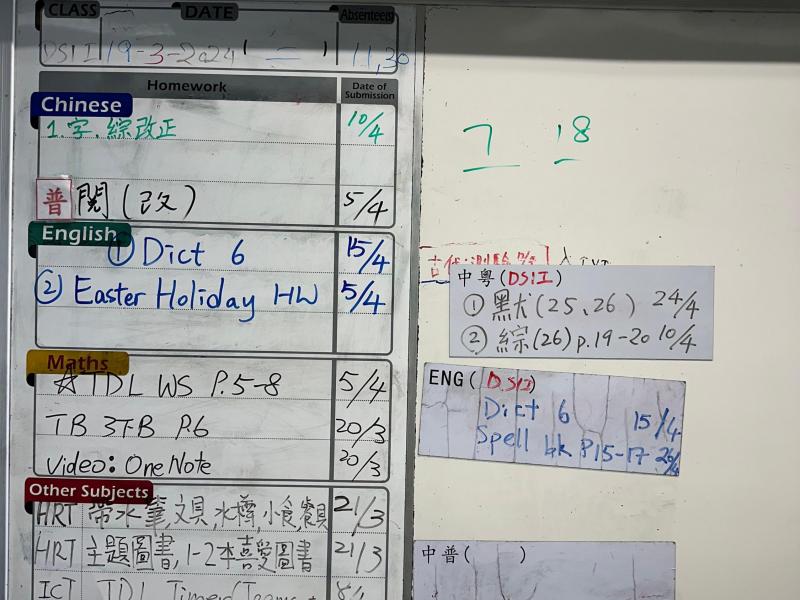 CLASS DATE Absentee(s)
DSI 19-3-2024 (二) 11,30
Homework Date of Submission
Chinese
1.字.綜改正 10/4
普 閱(改) 5/4
English
① Dict 6 15/4
② Easter Holiday HW 5/4
Maths
☆TDL WS P.5-8 5/4
TB 3FB P.6 20/3
Video: OneNote 20/3
Other Subjects
HRT 帶水筆,文具,水樽,小食,餐具 21/3
HRT 主題圖書,1-2本喜愛圖書 21/3
ICT TDL
7 18
中粵(DSI)
① 默(25、26) 24/4
② 綜(26)p.19-20 10/4
ENG(DSI)
Dict 6 15/4
Spell bk P15-17 26/4
中普( )